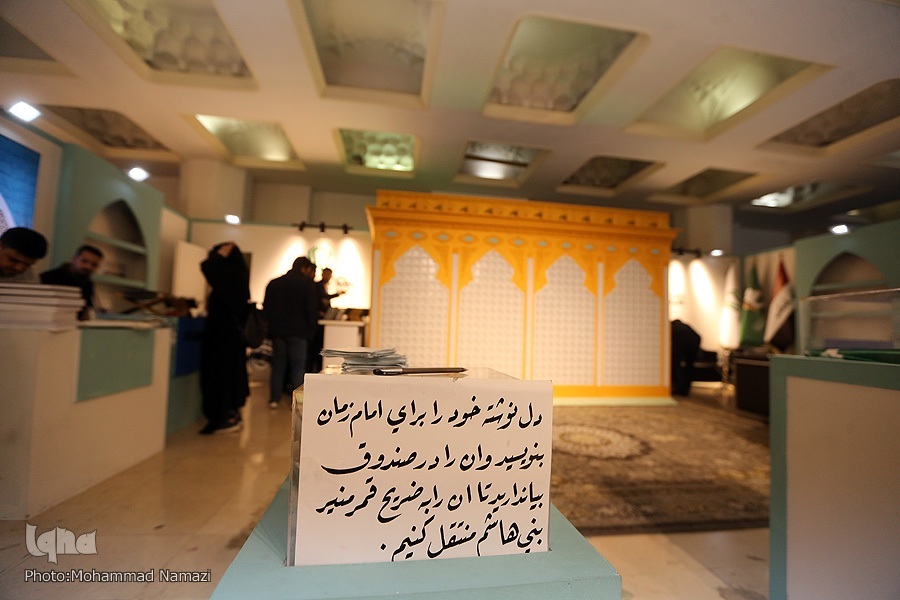 دل نوشته خود را براي امام زمان
بنويسيد وان را در صندوق
بياندازيد تا ان را به ضريح قمر منير
بني هاشم منتقل كنيم .
Iqna
Photo:Mohammad Namazi